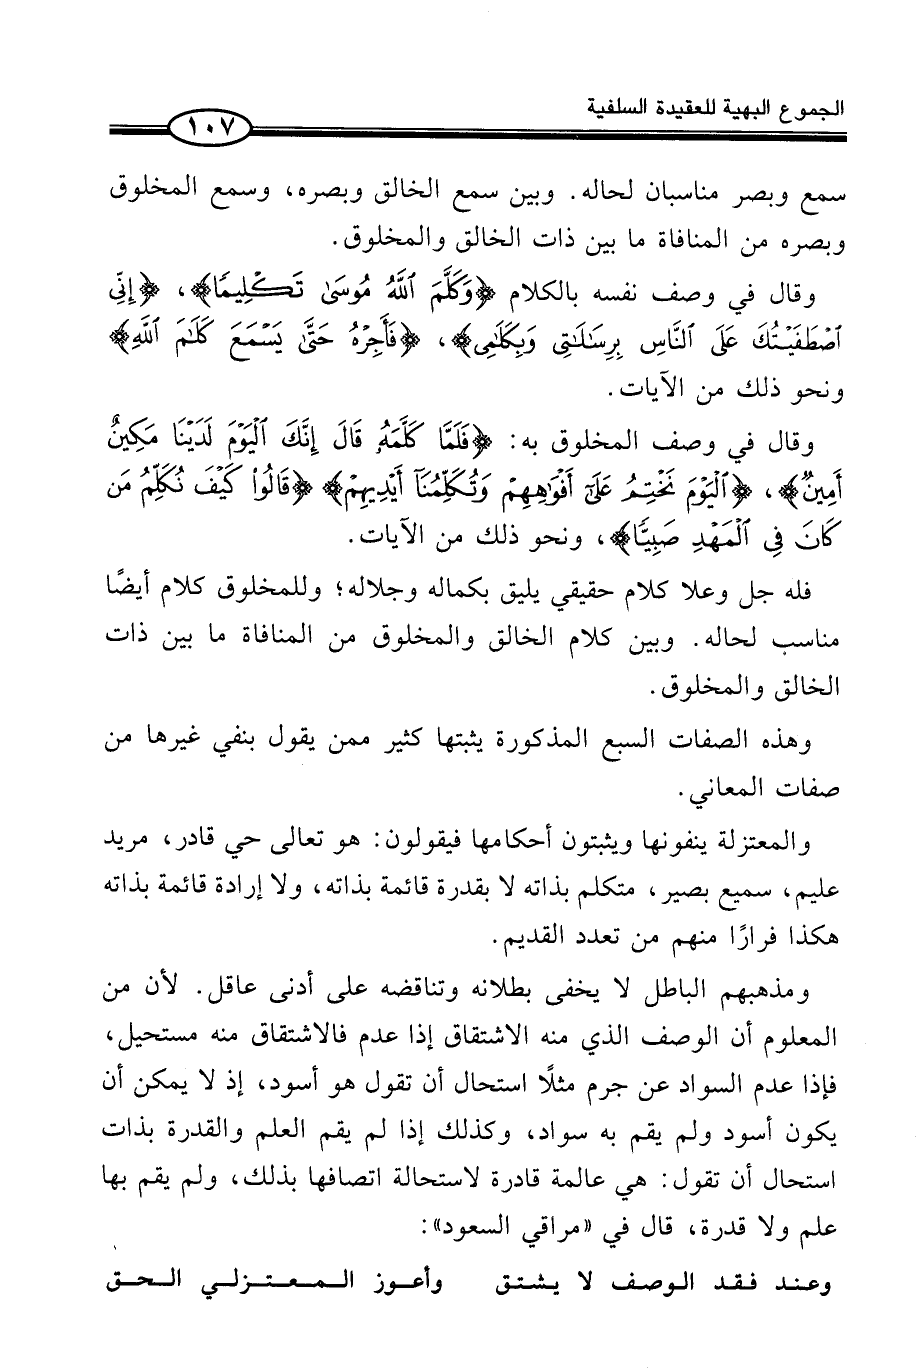 الجموع البهية للعقيدة السلفية
١٠٧
سمع وبصر مناسبان لحاله. وبين سمع الخالق وبصره، وسمع المخلوق
وبصره من المنافاة ما بين ذات الخالق والمخلوق.
وقال في وصف نفسه بالكلام ﴿وَكَلَّمَ ٱللَّهُ مُوسَىٰ تَكْلِيمًا﴾، ﴿إِنِّي
ٱصْطَفَيْتُكَ عَلَى ٱلنَّاسِ بِرِسَٰلَٰتِي وَبِكَلَٰمِي﴾، ﴿فَأَجِرْهُ حَتَّىٰ يَسْمَعَ كَلَٰمَ ٱللَّهِ﴾
ونحو ذلك من الآيات.
وقال في وصف المخلوق به: ﴿فَلَمَّا كَلَّمَهُۥ قَالَ إِنَّكَ ٱلْيَوْمَ لَدَيْنَا مَكِينٌ
أَمِينٌ﴾، ﴿ٱلْيَوْمَ نَخْتِمُ عَلَىٰٓ أَفْوَٰهِهِمْ وَتُكَلِّمُنَآ أَيْدِيهِمْ﴾ ﴿قَالُوا۟ كَيْفَ نُكَلِّمُ مَن
كَانَ فِي ٱلْمَهْدِ صَبِيًّا﴾، ونحو ذلك من الآيات.
فله جل وعلا كلام حقيقي يليق بكماله وجلاله؛ وللمخلوق كلام أيضًا
مناسب لحاله. وبين كلام الخالق والمخلوق من المنافاة ما بين ذات
الخالق والمخلوق.
وهذه الصفات السبع المذكورة يثبتها كثير ممن يقول بنفي غيرها من
صفات المعاني.
والمعتزلة ينفونها ويثبتون أحكامها فيقولون: هو تعالى حي قادر، مريد
عليم، سميع بصير، متكلم بذاته لا بقدرة قائمة بذاته، ولا إرادة قائمة بذاته
هكذا فرارًا منهم من تعدد القديم.
ومذهبهم الباطل لا يخفى بطلانه وتناقضه على أدنى عاقل. لأن من
المعلوم أن الوصف الذي منه الاشتقاق إذا عدم فالاشتقاق منه مستحيل،
فإذا عدم السواد عن جرم مثلًا استحال أن تقول هو أسود، إذ لا يمكن أن
يكون أسود ولم يقم به سواد، وكذلك إذا لم يقم العلم والقدرة بذات
استحال أن تقول: هي عالمة قادرة لاستحالة اتصافها بذلك، ولم يقم بها
علم ولا قدرة، قال في «مراقي السعود»:
وعند فقد الوصف لا يشتق وأعوز المعتزلي الحق